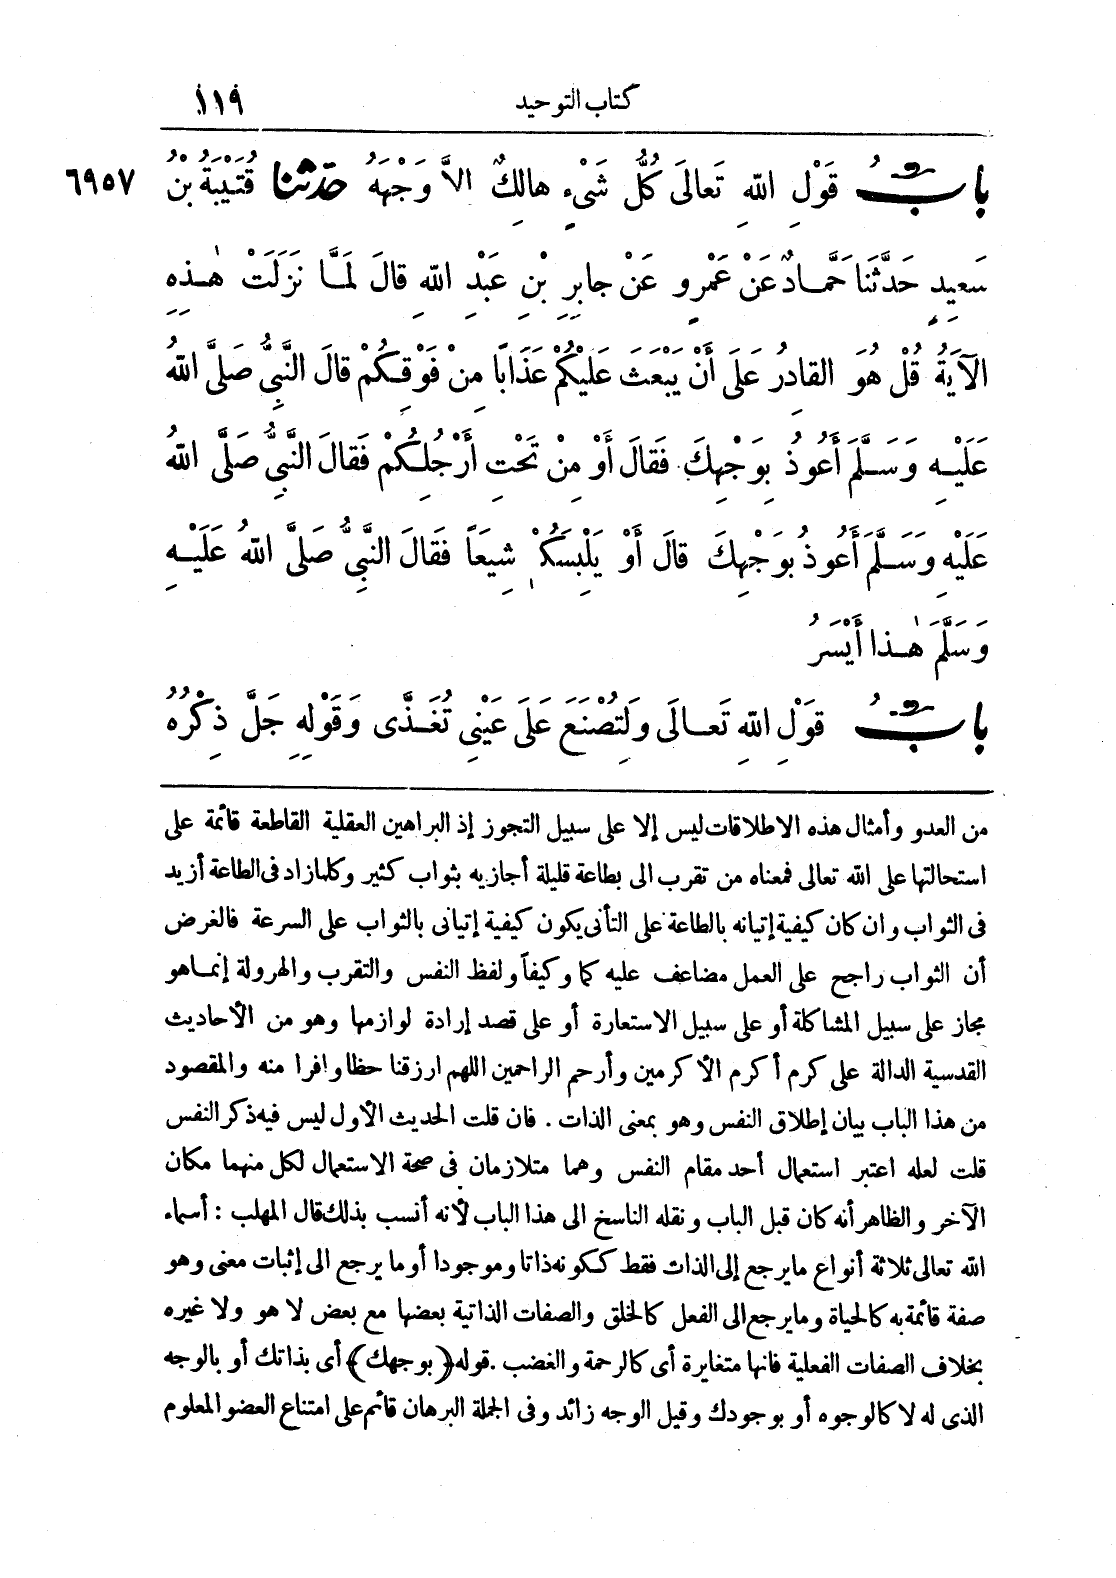 كتاب التوحيد ١١٩
بَابُ قَوْلِ اللهِ تَعالَى كُلُّ شَىْءٍ هالِكٌ الاَّ وَجْهَهُ حدثنا قُتَيْبَةُ بْنُ ٦٩٥٧
سَعِيدٍ حَدَّثَنَا حَمَّادٌ عَنْ عَمْرٍو عَنْ جابِرِ بْنِ عَبْدِ اللهِ قالَ لَمَّا نَزَلَتْ هٰذِهِ
الآيَةُ قُلْ هُوَ القادِرُ عَلَى أَنْ يَبْعَثَ عَلَيْكُمْ عَذَابًا مِنْ فَوْقِكُمْ قالَ النَّبِىُّ صَلَّى اللهُ
عَلَيْهِ وَسَلَّمَ أَعُوذُ بِوَجْهِكَ فَقالَ أَوْ مِنْ تَحْتِ أَرْجُلِكُمْ فَقالَ النَّبِىُّ صَلَّى اللهُ
عَلَيْهِ وَسَلَّمَ أَعُوذُ بِوَجْهِكَ قالَ أَوْ يَلْبِسَكُمْ شِيَعًا فَقالَ النَّبِىُّ صَلَّى اللهُ عَلَيْهِ
وَسَلَّمَ هٰذا أَيْسَرُ
بَابُ قَوْلِ اللهِ تَعالَى وَلِتُصْنَعَ عَلَى عَيْنِى تُغَذَّى وَقَوْلِهِ جَلَّ ذِكْرُهُ
من العدو وأمثال هذه الاطلاقات ليس إلا على سبيل التجوز إذ البراهين العقلية القاطعة قائمة على
استحالتها على الله تعالى فمعناه من تقرب الى بطاعة قليلة أجازيه بثواب كثير وكلما زاد فى الطاعة أزيد
فى الثواب وان كان كيفية إتيانه بالطاعة على التأنى يكون كيفية إتيانى بالثواب على السرعة فالغرض
أن الثواب راجح على العمل مضاعف عليه كما وكيفاً ولفظ النفس والتقرب والهرولة إنما هو
مجاز على سبيل المشاكلة أو على سبيل الاستعارة أو على قصد إرادة لوازمها وهو من الأحاديث
القدسية الدالة على كرم أكرم الأكرمين وأرحم الراحمين اللهم ارزقنا حظا وافرا منه والمقصود
من هذا الباب بيان إطلاق النفس وهو بمعنى الذات . فان قلت الحديث الأول ليس فيه ذكر النفس
قلت لعله اعتبر استعمال أحد مقام النفس وهما متلازمان فى صحة الاستعمال لكل منهما مكان
الآخر والظاهر أنه كان قبل الباب ونقله الناسخ الى هذا الباب لأنه أنسب بذلك قال المهلب : أسماء
الله تعالى ثلاثة أنواع ما يرجع إلى الذات فقط ككونه ذاتا وموجودا أو ما يرجع الى إثبات معنى وهو
صفة قائمة به كالحياة وما يرجع الى الفعل كالخلق والصفات الذاتية بعضها مع بعض لا هو ولا غيره
بخلاف الصفات الفعلية فانها متغايرة أى كالرحمة والغضب . قوله (بوجهك) أى بذاتك أو بالوجه
الذى له لا كالوجوه أو بوجودك وقيل الوجه زائد وفى الجملة البرهان قائم على امتناع العضو المعلوم